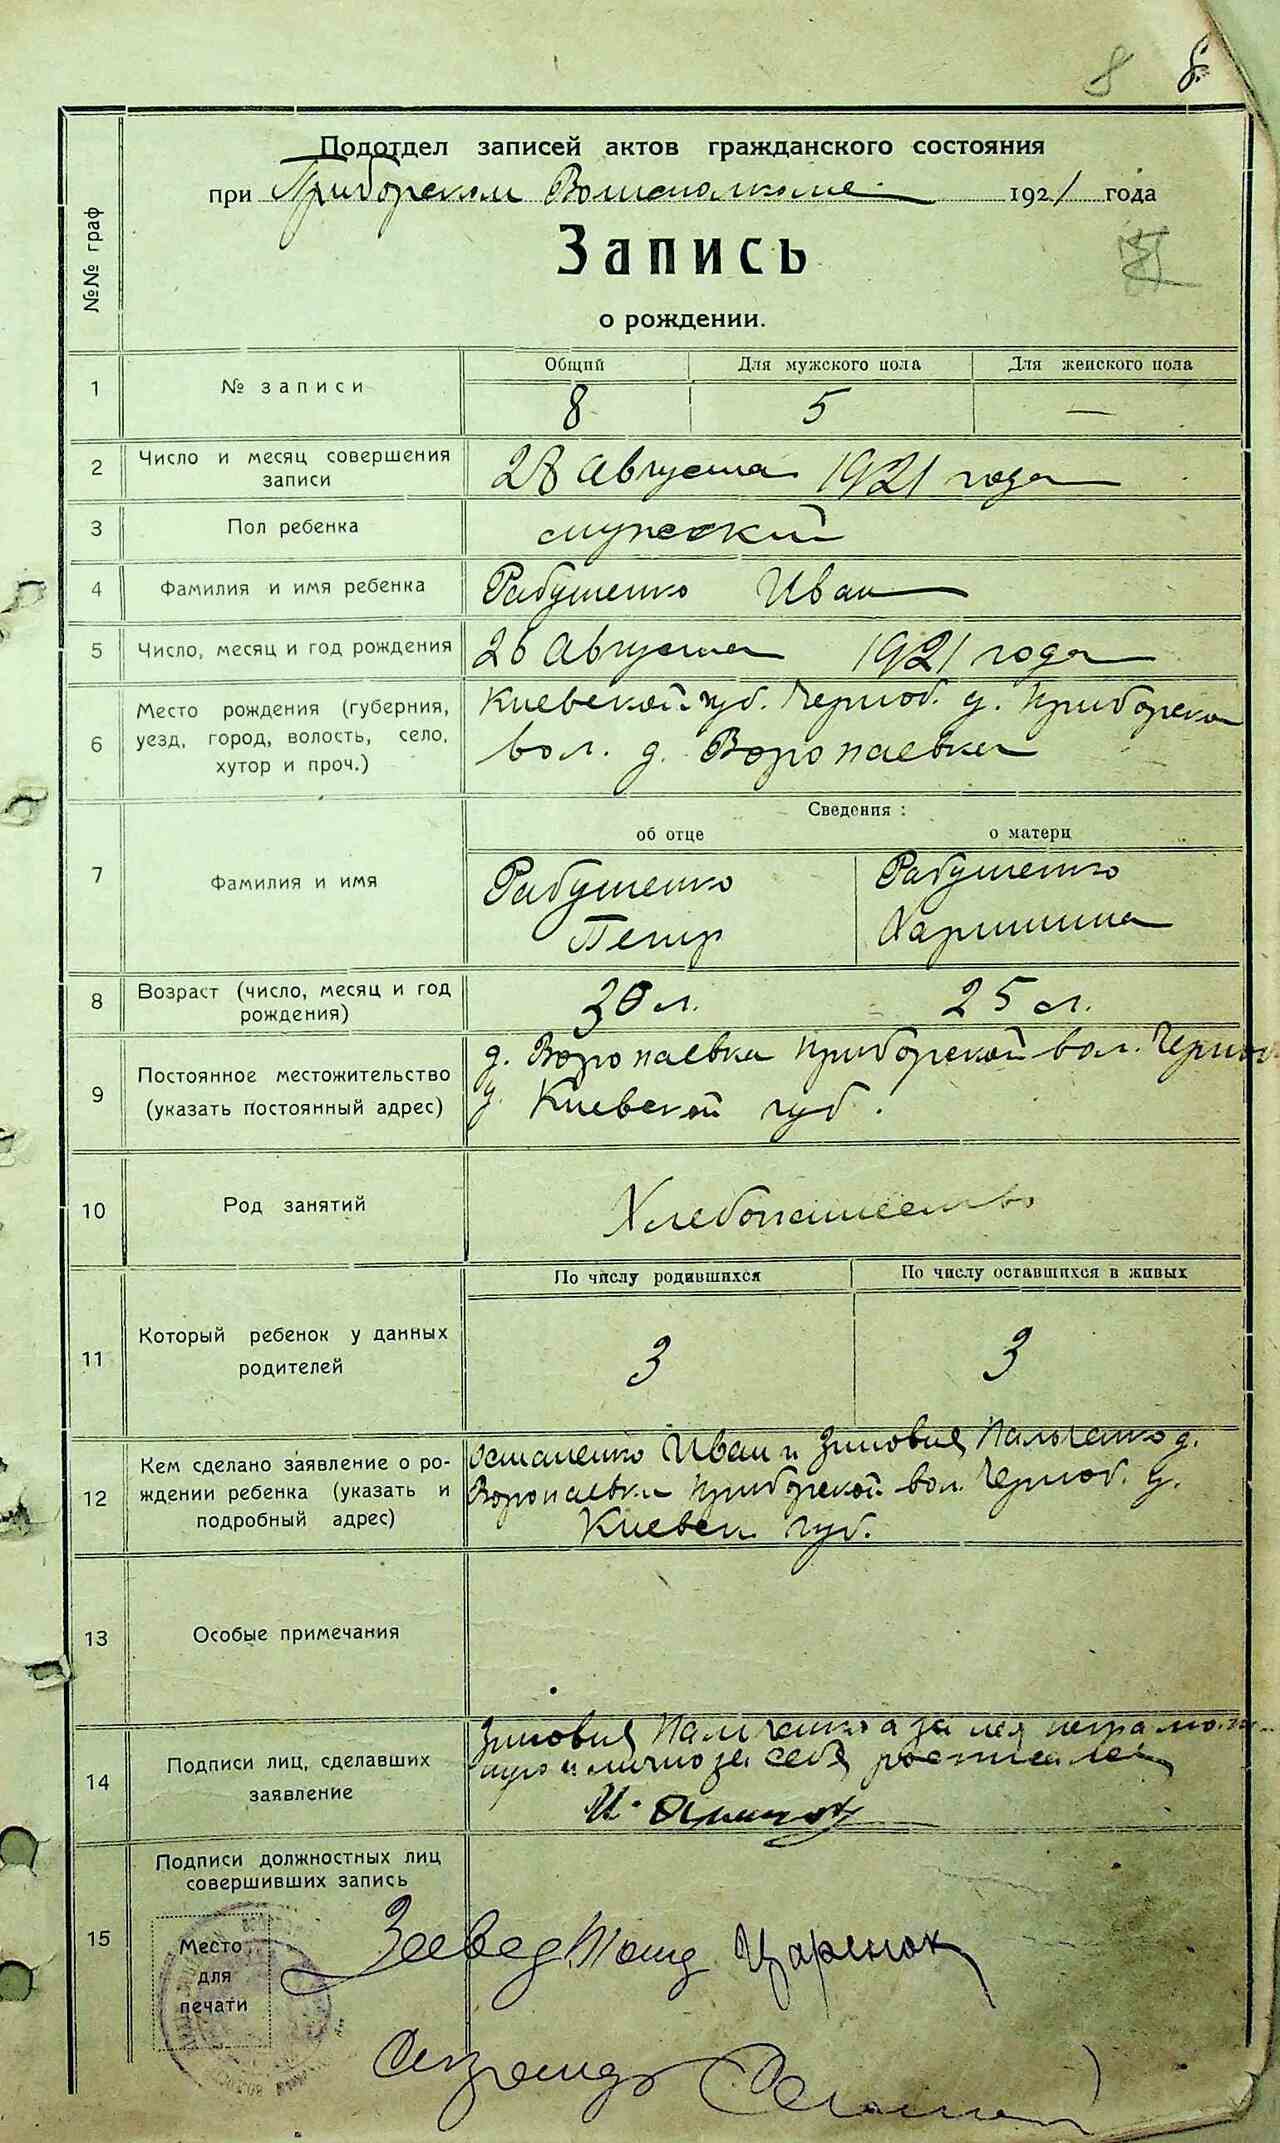 8 8
Подотдел записей актов гражданского состояния
при Приборском Волисполкоме 1921 года
Запись
о рождении.
№№ граф
Общий Для мужского пола Для женского пола
1 № записи 8 5 —
2 Число и месяц совершения записи 28 Августа 1921 года
3 Пол ребенка мужеский
4 Фамилия и имя ребенка Рабушенко Иван
5 Число, месяц и год рождения 26 Августа 1921 года
6 Место рождения (губерния, Киевской губ. Черноб. у. Приборской
уезд, город, волость, село, вол. д. Воропаевка
хутор и проч.)
Сведения:
об отце о матери
7 Фамилия и имя Рабушенко Рабушенко
Петр Харитина
8 Возраст (число, месяц и год рождения) 30 л. 25 л.
9 Постоянное местожительство д. Воропаевка Приборской вол. Черноб.
(указать постоянный адрес) у. Киевской губ.
10 Род занятий Хлебопашество
По числу родившихся По числу оставшихся в живых
11 Который ребенок у данных родителей 3 3
12 Кем сделано заявление о ро- Остапенко Иван и Зиновия Пальченко д.
ждении ребенка (указать и Воропаевки Приборской вол. Черноб. у.
подробный адрес) Киевск губ.
13 Особые примечания
14 Подписи лиц, сделавших Зиновия Пальченко а за нея неграмот-
заявление ную и лично за себя
И.
15 Подписи должностных лиц
совершивших запись
Место
для
печати
Завед Царенок
Секретарь